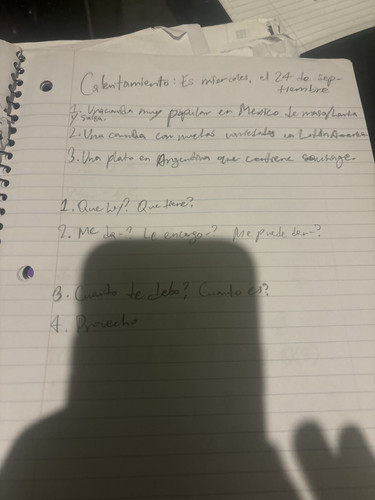 Calentamiento: Es miercoles, el 24 de sep-
tiembre
1. Una comida muy popular en Mexico de masa/
y salsa.
2. Una comida con muchas variedades en Latin America
3. Una plato en Argentina que contiene
1. Que hay? Que tiene?
2. Me da-? Le encargo-? Me puede dar-?
3. Cuanto te debo? Cuanto es?
4. Provecho